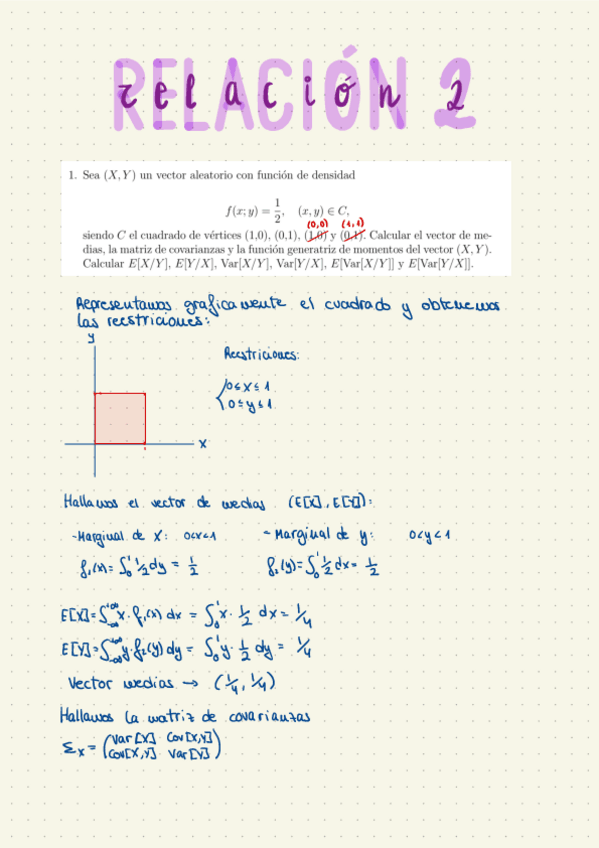 RELACIÓN 2
relación 2
1. Sea (X, Y) un vector aleatorio con función de densidad
f(x; y) = 1/2, (x, y) ∈ C,
(0,0) (1,1)
siendo C el cuadrado de vértices (1,0), (0,1), (1,0) y (0,1). Calcular el vector de me-
dias, la matriz de covarianzas y la función generatriz de momentos del vector (X, Y).
Calcular E[X/Y], E[Y/X], Var[X/Y], Var[Y/X], E[Var[X/Y]] y E[Var[Y/X]].
Representamos graficamente el cuadrado y obtenemos
las reestriciones:
y
Reestriciones:
0≤x≤1
0≤y≤1
x
1
Hallamos el vector de medias (E[X], E[Y]):
-Marginal de X: 0<x<1
- Marginal de y: 0<y<1
f₁(x)=∫₀¹ 1/2 dy = 1/2
f₂(y)=∫₀¹ 1/2 dx = 1/2
E[X]=∫₋∞^+∞ x·f₁(x) dx = ∫₀¹ x·1/2 dx = 1/4
E[Y]=∫₋∞^+∞ y·f₂(y) dy = ∫₀¹ y·1/2 dy = 1/4
Vector medias → (1/4, 1/4)
Hallamos la matriz de covarianzas
Σx = (Var[X] Cov[X,Y]
Cov[X,Y] Var[Y])